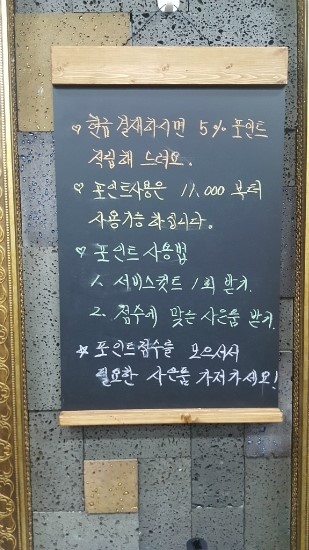 ♡ 현금결재하시면 5% 포인트
적립해 드려요.
♡ 포인트사용은 11,000 부터
사용가능하십니다.
♡ 포인트 사용법
1. 서비스컷트 1회 받기.
2. 점수에 맞는 사은품 받기.
☆ 포인트점수를 모으셔서
필요한 사은품 가져가세요!